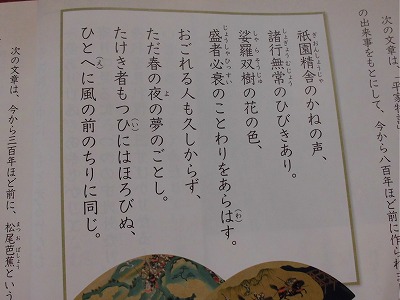 次の文章は、「平家物語」
の出来事をもとにして、今から八百年ほど前に作られ
祇園精舎のかねの声、
諸行無常のひびきあり。
娑羅双樹の花の色、
盛者必衰のことわりをあらはす。
おごれる人も久しからず、
ただ春の夜の夢のごとし。
たけき者もつひにはほろびぬ、
ひとへに風の前のちりに同じ。
次の文章は、今から三百年ほど前に、松尾芭蕉という